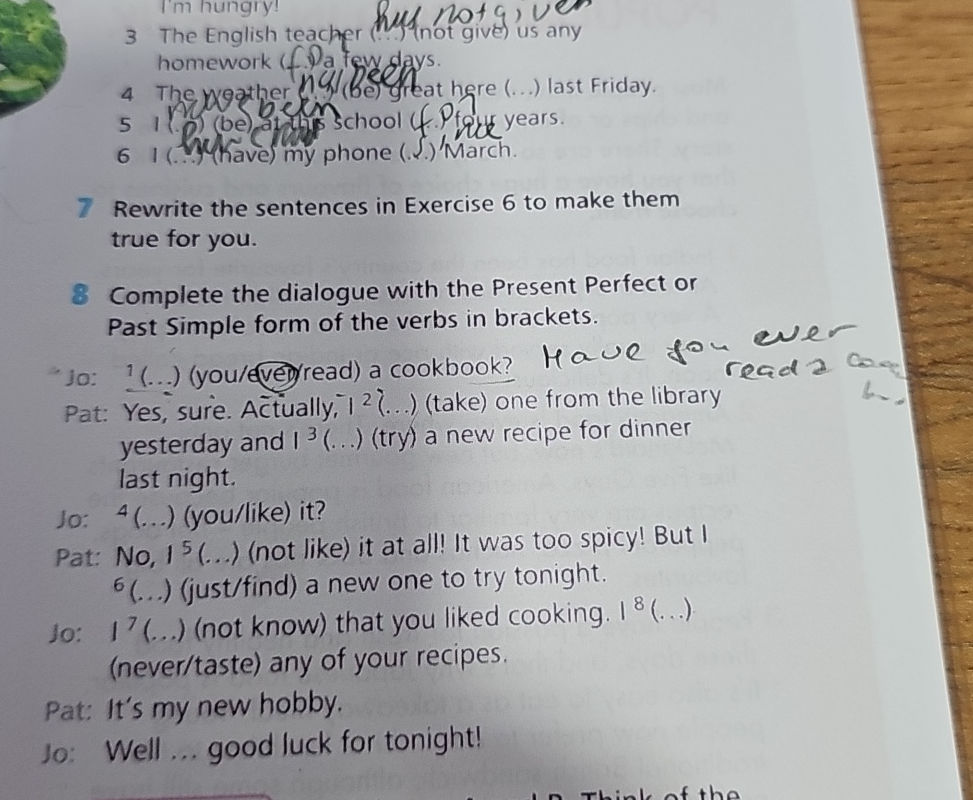 I'm hungry!
has not given
3 The English teacher (...) (not give) us any
homework (...) a few days.
4 The weather (...) (be) great here (...) last Friday.
have been
5 I (...) (be) at this school (...) four years.
6 I (...) (have) my phone (...) March.
7 Rewrite the sentences in Exercise 6 to make them
true for you.
8 Complete the dialogue with the Present Perfect or
Past Simple form of the verbs in brackets.
Jo: 1 (...) (you/ever/read) a cookbook? Have you ever
read a
Pat: Yes, sure. Actually, I 2 (...) (take) one from the library
yesterday and I 3 (...) (try) a new recipe for dinner
last night.
Jo: 4 (...) (you/like) it?
Pat: No, I 5 (...) (not like) it at all! It was too spicy! But I
6 (...) (just/find) a new one to try tonight.
Jo: I 7 (...) (not know) that you liked cooking. I 8 (...)
(never/taste) any of your recipes.
Pat: It's my new hobby.
Jo: Well ... good luck for tonight!
Think of the